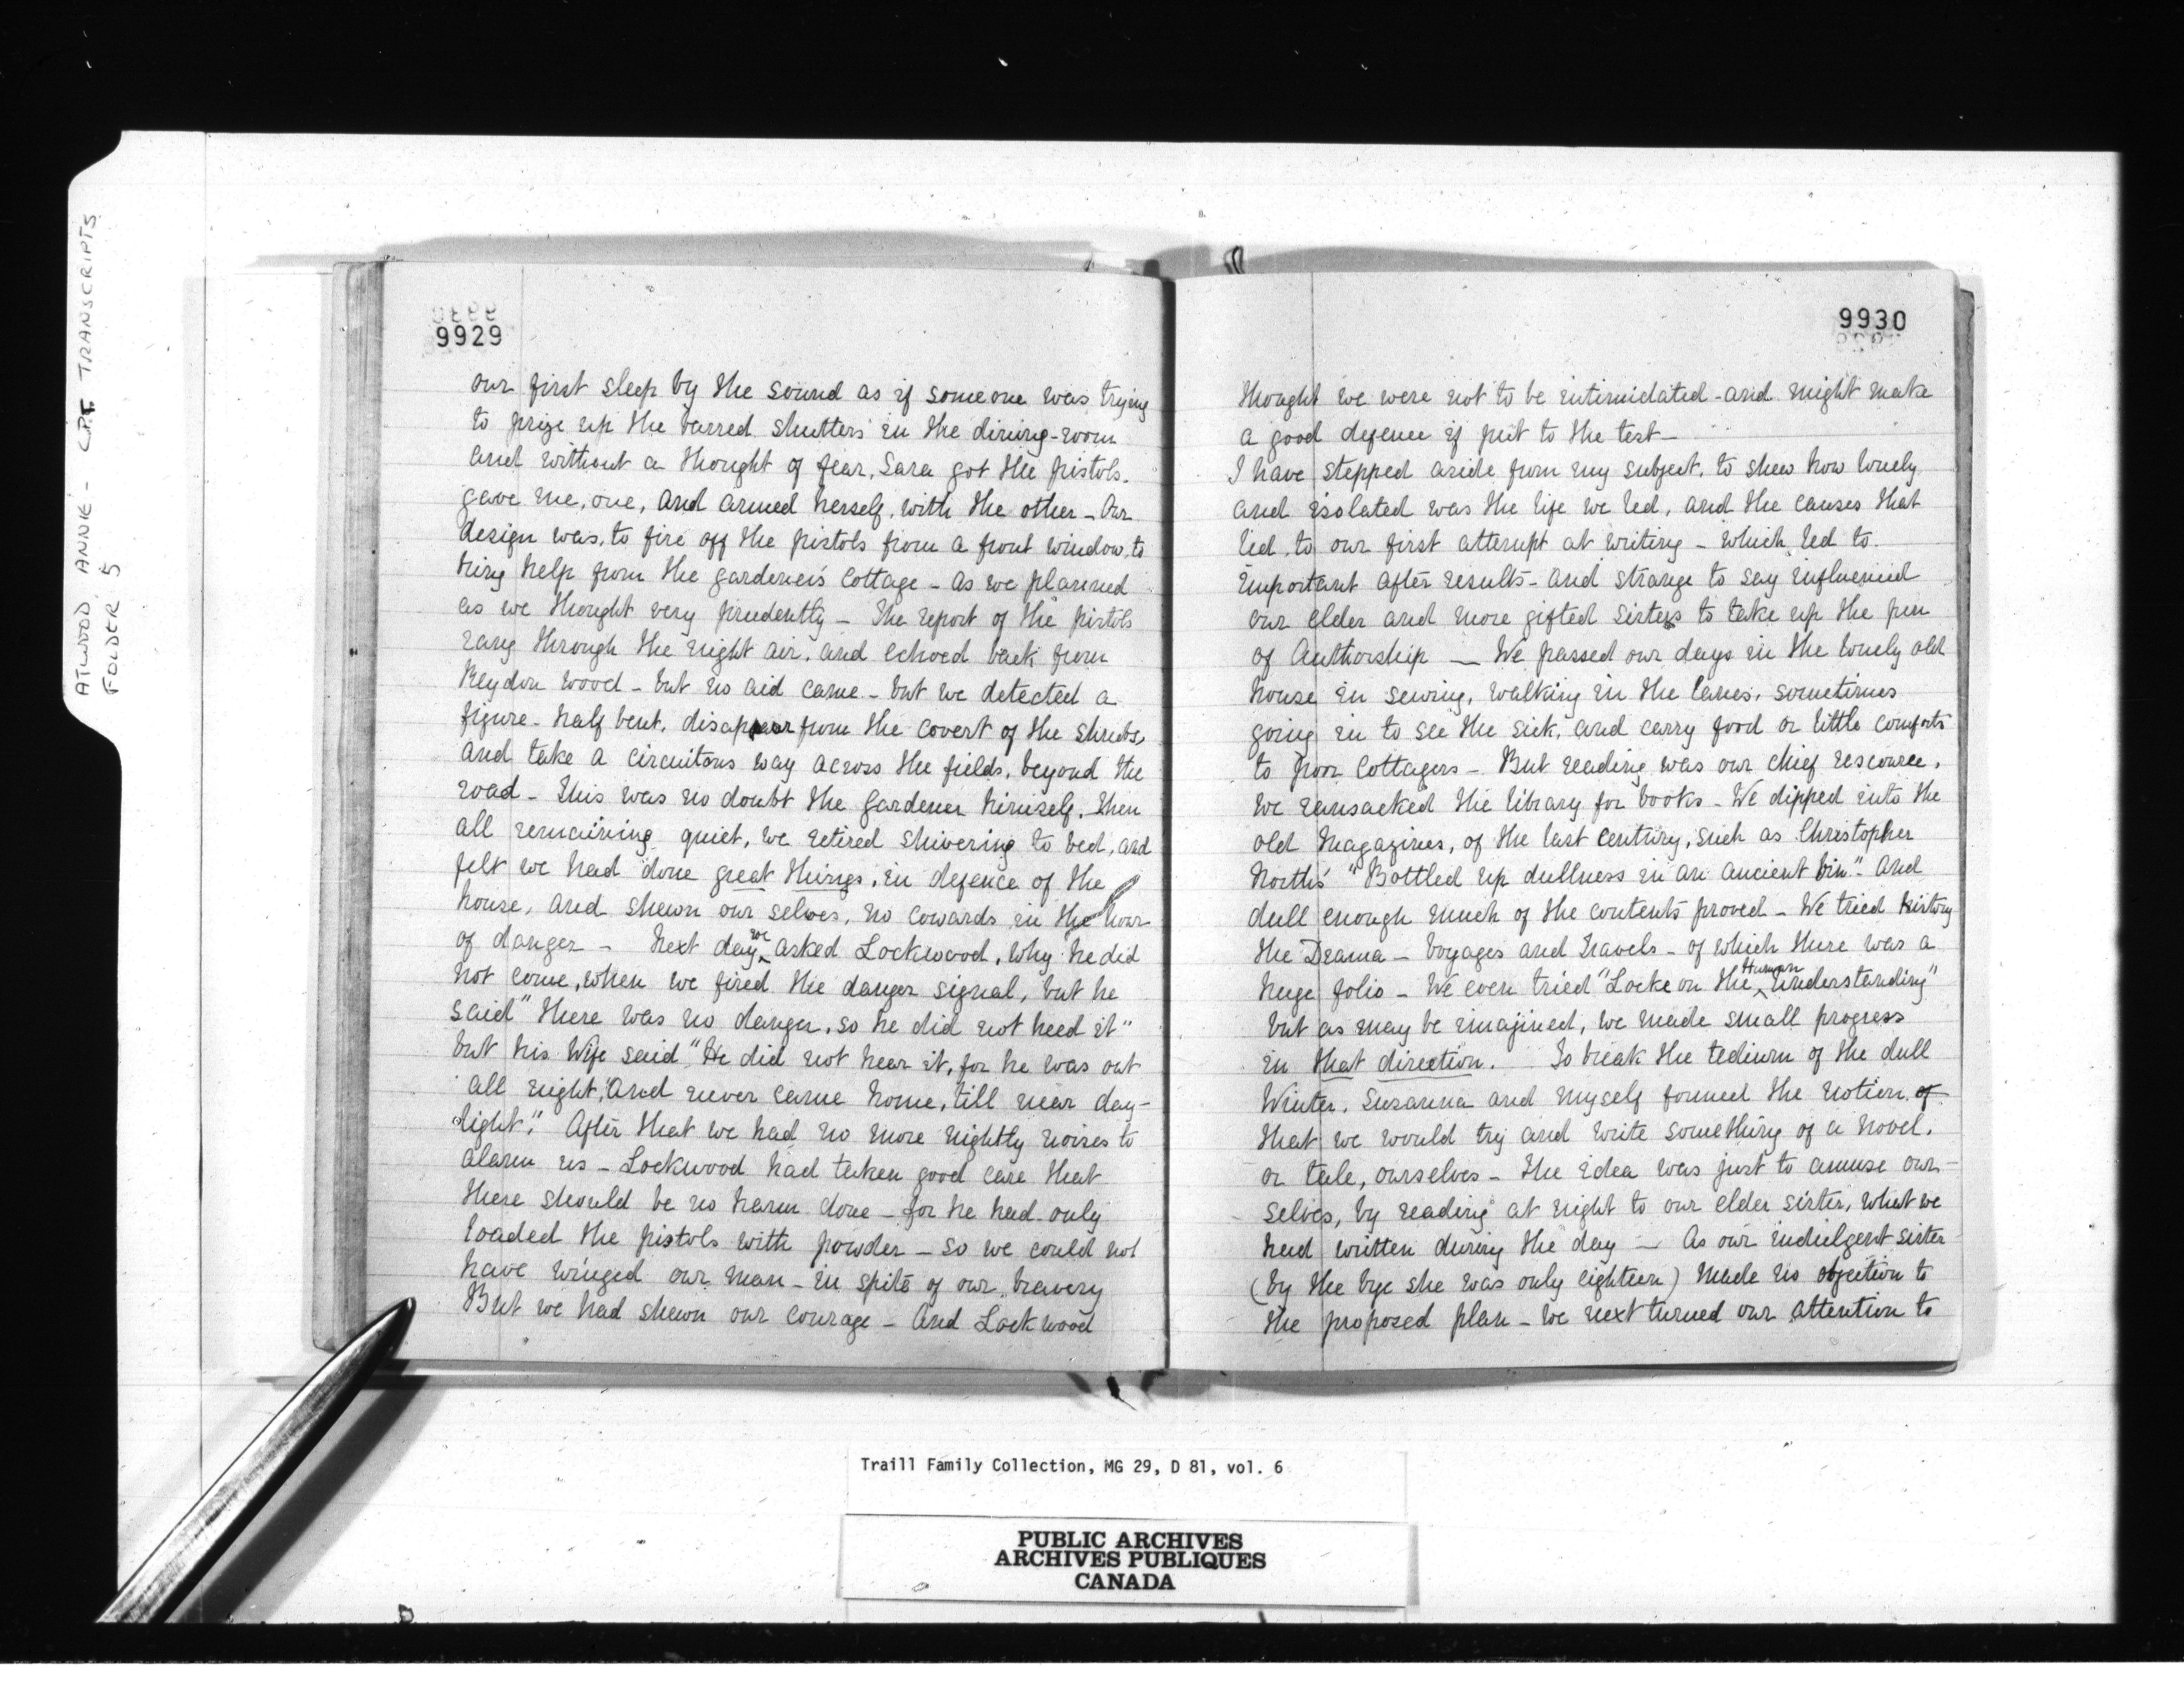 ATWOOD, ANNIE - C.P.T. TRANSCRIPTS
FOLDER 5
9929
our first sleep by the sound as if someone was trying
to prize up the barred shutters in the dining-room
and without a thought of fear, Sara got the pistols.
gave me, one, and armed herself, with the other - Our
design was, to fire off the pistols from a front window, to
bring help from the gardener's cottage - As we planned
as we thought very prudently - The report of the pistols
rang through the night air, and echoed back from
Reydon wood - but no aid came - but we detected a
figure - half bent, disappear from the covert of the shrubs,
and take a circuitous way across the fields, beyond the
road - This was no doubt the gardener himself. Then
all remaining quiet, we retired shivering to bed, and
felt we had done great things, in defence of the
house, and shewn our selves, no cowards in the hour
of danger - Next day we asked Lockwood, why he did
not come, when we fired the danger signal, but he
said "there was no danger, so he did not heed it"
but his Wife said "He did not hear it, for he was out
all night, and never came home, till near day-
light." After that we had no more nightly noises to
alarm us - Lockwood had taken good care that
there should be no harm done - for he had only
loaded the pistols with powder - so we could not
have winged our man - in spite of our bravery
But we had shewn our courage - And Lockwood
9930
thought we were not to be intimidated - and might make
a good defence if put to the test -
I have stepped aside from my subject, to shew how lonely
and isolated was the life we led, and the causes that
led, to our first attempt at writing - which led to
important after results - and strange to say influenced
our elder and more gifted sisters to take up the pen
of Authorship - We passed our days in the lonely old
house in sewing, walking in the lanes, sometimes
going in to see the sick, and carry food or little comforts
to poor cottagers - But reading was our chief rescource,
we ransacked the library for books - We dipped into the
old Magazines, of the last century, such as Christopher
North's "Bottled up dullness in an ancient bin." And
dull enough much of the contents proved - We tried history
the Drama - Voyages and Travels - of which there was a
huge folio - We even tried "Locke on the Human Understanding"
but as may be imagined, we made small progress
in that direction. To break the tedium of the dull
Winter, Susanna and myself formed the notion of
that we would try and write something of a novel,
or tale, ourselves - The idea was just to amuse our-
selves, by reading at night to our elder sister, what we
had written during the day - As our indulgent sister
(by the bye she was only eighteen) made no objection to
the proposed plan - we next turned our attention to
Traill Family Collection, MG 29, D 81, vol. 6
PUBLIC ARCHIVES
ARCHIVES PUBLIQUES
CANADA